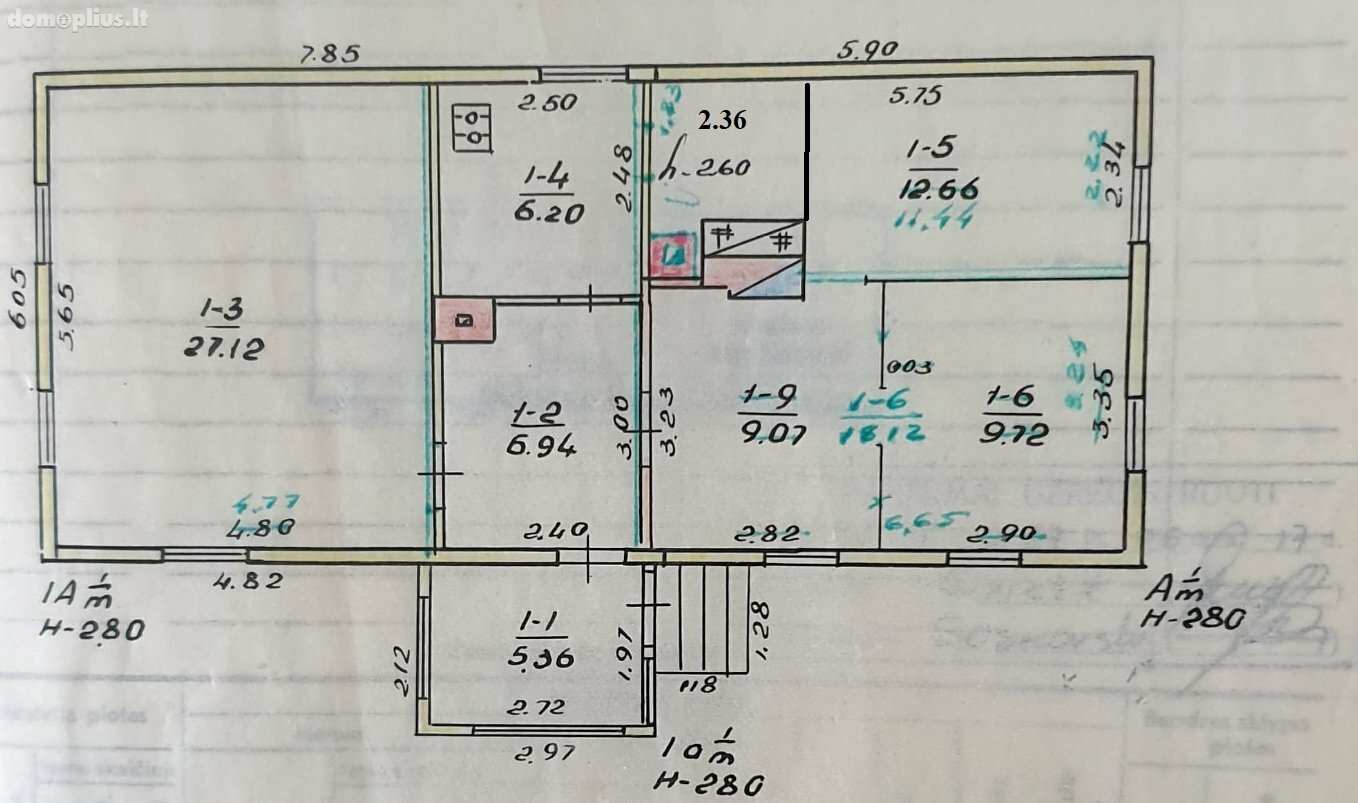 domoplius.lt
7.85
5.90
2.50
1.83
2.36
5.75
1-4
6.20
2.48
h-260
1-5
12.66
11.44
2.22
2.34
6.05
5.65
1-3
27.12
1-2
6.94
3.00
3.23
1-9
9.07
003
1-6
18.12
1-6
9.72
3.25
3.35
4.77
4.80
2.40
2.82
6,65
2.90
4.82
1A 1/m
H-2.80
A 1/m
H-280
1-1
5.36
1.97
2.12
1.28
118
2.72
2.97
1a 1/m
H-280
plotas